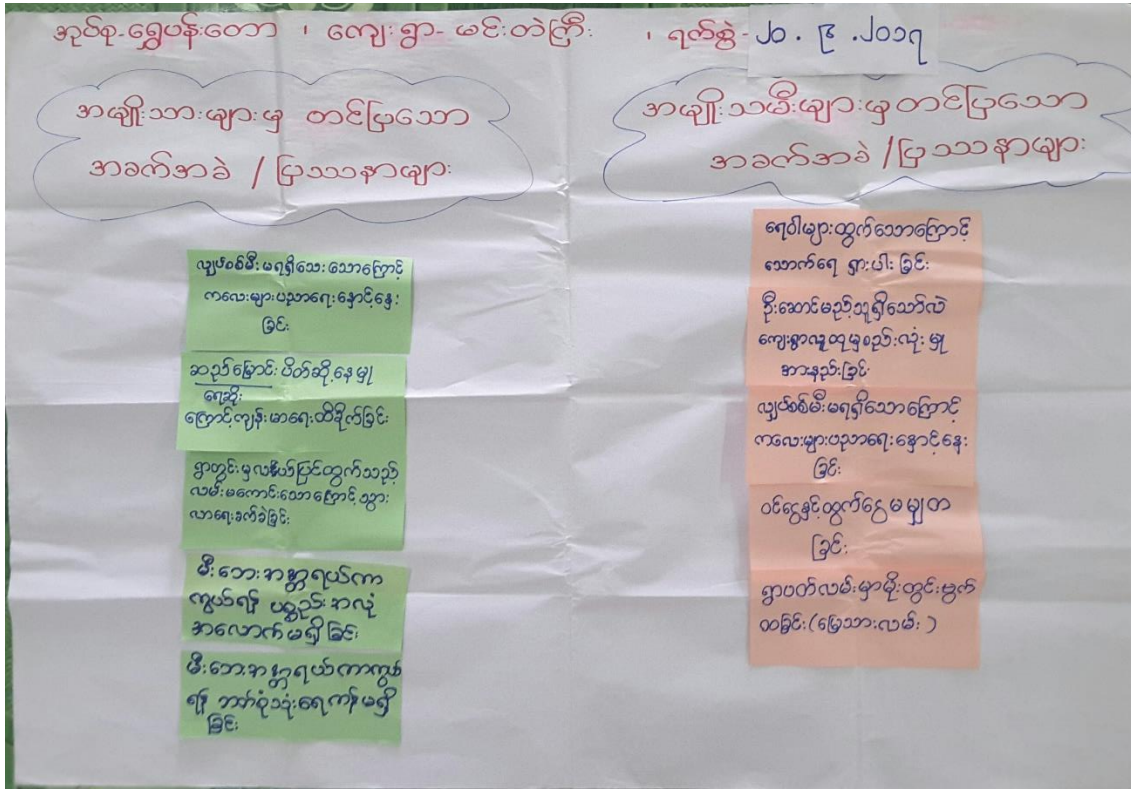 အုပ်စု-ရွှေပန်းတော ၊ ကျေးရွာ- မင်းတဲကြီး ၊ ရက်စွဲ- ၂၀ . ၉ .၂၀၁၇
အမျိုးသားများမှ တင်ပြသော
အခက်အခဲ / ပြဿနာများ
လျှပ်စစ်မီးမရရှိသေးသောကြောင့်
ကလေးများပညာရေးနှောင့်နှေး
ခြင်း
ဆည်မြောင်းပိတ်ဆို့နေမှု
ရေဆိုး
ကြောင့်ကျန်းမာရေးထိခိုက်ခြင်း
ရွာတွင်းမှလယ်ပြင်ထွက်သည့်
လမ်းမကောင်းသောကြောင့်သွား
လာရေးခက်ခဲခြင်း
မီးဘေးအန္တရယ်ကာ
ကွယ်ရန် ပစ္စည်းအလုံ
အလောက်မရှိခြင်း
မီးဘေးအန္တရယ်ကာကွယ်
ရန် ဘက်စုံသုံးရေကန်မရှိ
ခြင်း
အမျိုးသမီးများမှတင်ပြသော
အခက်အခဲ /ပြဿနာများ
ရေဝါများထွက်သောကြောင့်
သောက်ရေ ရှားပါးခြင်း
ဦးဆောင်မည့်သူရှိသော်လဲ
ကျေးရွာလူထုမှစည်းလုံးမှု
အားနည်းခြင်း
လျှပ်စစ်မီးမရရှိသောကြောင့်
ကလေးများပညာရေးနှောင့်နှေး
ခြင်း
ဝင်ငွေနှင့်ထွက်ငွေမမျှတ
ခြင်း
ရွာပတ်လမ်းမှာမိုးတွင်းဗွက်
ထခြင်း(မြေသားလမ်း)